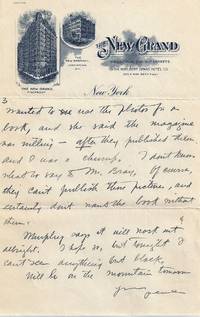 THE NEW GRAND
THE NEW GRAND
New York
3
wanted to use the photos for a
book, and she said the magazine
was willing — after they published them
and I was a chump. I don't know
what to say to Mr. Bray. Of course,
they can't publish those pictures, and
certainly don't want the book without
them.
Murphy says it will work out
allright. I hope so, but tonight I
can't see anything but black,
Will be on the mountain tomorrow